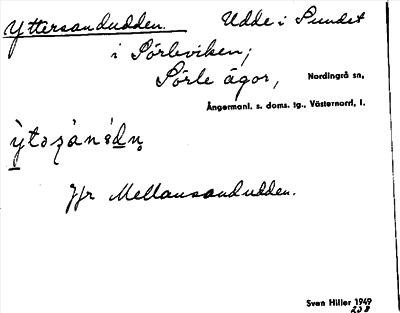 Yttersandudden. Udde i Sundet
i Sörleviken;
Sörle ägor, Nordingrå sn,
Ångermanl. s. doms. tg., Västernorrl. l.
Jfr Mellansandudden.
Sven Hiller 1949